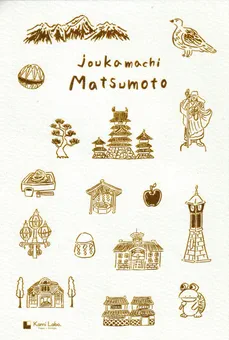 joukamachi
Matsumoto
Kami Labo.